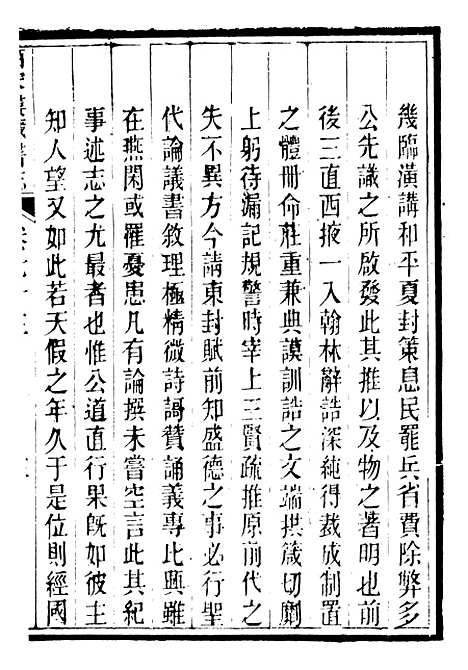 幾臨潢講和平夏封策息民罷兵省費除弊多
公先識之所啟發此其推以及物之著明也前
後三直西掖一入翰林辭誥深純得裁成制置
之體冊命莊重兼典謨訓誥之文端拱箴切劘
上躬待漏記規警時宰上三賢疏推原前代之
失不異方今請東封賦前知盛德之事必行聖
代論議書敘理極精微詩謌贊誦義專比興雖
在燕閑或罹憂患凡有論撰未嘗空言此其紀
事述志之尤最者也惟公道直行果既如彼主
知人望又如此若天假之年久于是位則經國